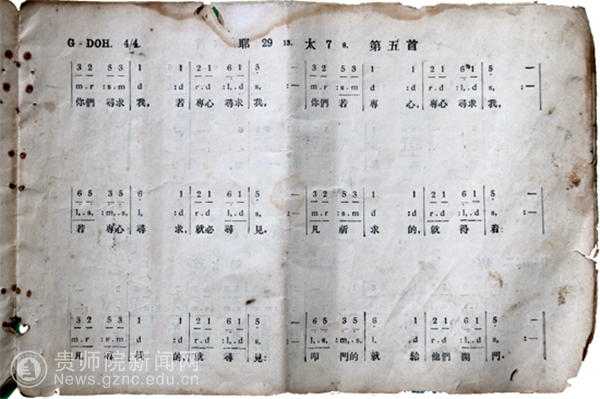 G-DOH. 4/4. 耶 29 13. 太 7 8. 第五首
3 2 5 3 1 1 2 1 6 1 5 — 3 2 5 3 1 1 2 1 6 1 5 —
m.r :s.m d :d r.d :l.d s, :— m.r :s.m d :d r.d :l.d s, :—
你們 尋求 我, 若 專心 尋求 我, 你們 若 專 心, 專心 尋求 我,
6 5 3 5 6 1 2 1 6 1 5 — 3 2 5 3 1 1 2 1 6 1 5 —
l,.s, :m,.s, l, :d r.d :l,.d s, :— m.r :s.m d :d r.d :l,.d s, :—
若 專心 尋 求, 就必 尋 見。 凡 祈 求 的, 就 得 着:
3 2 5 3 1 1 2 1 6 1 5 — 6 5 3 5 6 1 2 1 6 1 5 —
m.r :s.m d :d r.d :l,.d s, :— l,.s, :m,.s, l, :d r.d :l,.d s, :—
凡 的, 就 尋 見: 叩 門 的 就 給 他們 開 門。
贵师院新闻网
News.gznc.edu.cn